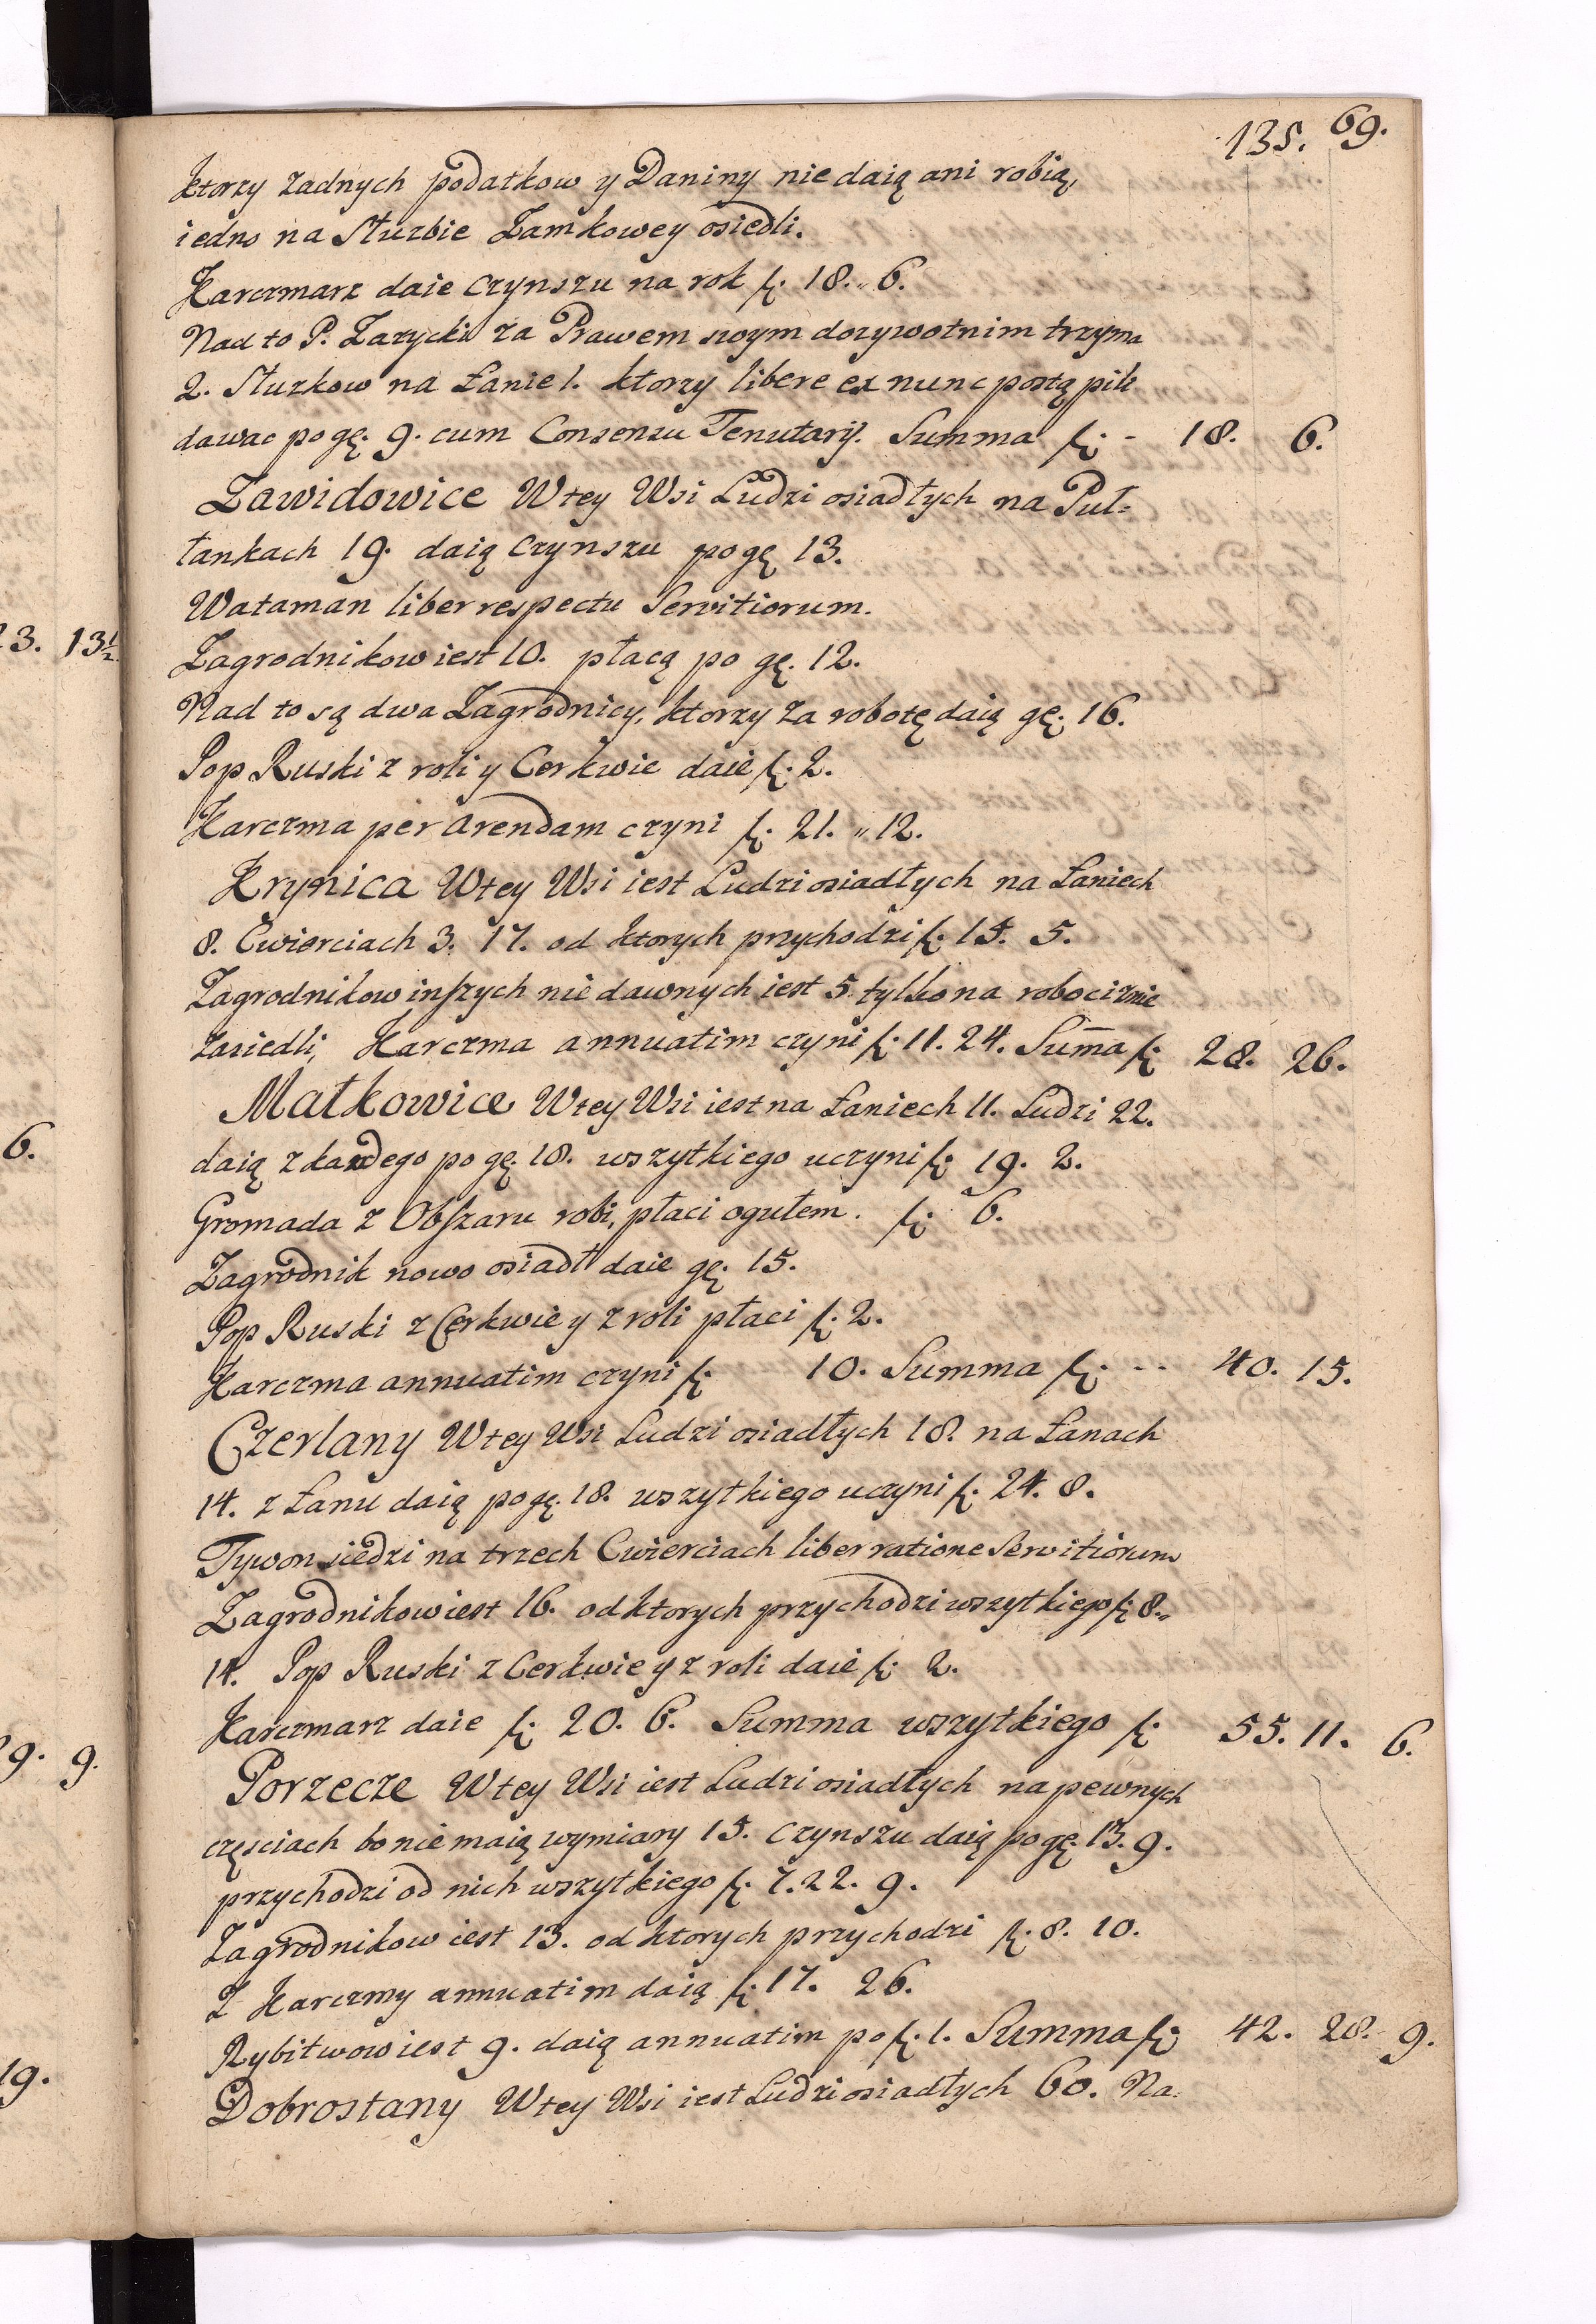 135. 69.
ktorzy zadnych podatkow y Daniny nie daią ani robią,
iedno na Słuzbie Zamkowey osiedli.
Karczmarz daie Czynszu na rok f. 18. „ 6.
Nad to P. Zazycki za Prawem swym dozywotnim trzyma
2. Słuzkow na Łanie 1. ktorzy libere ex nunc postąpili
dawac po gę. 9. cum Consensu Tenutarij. Summa f. - 18. 6.
Zawidowice W tey Wsi Ludzi osiadłych na Puł=
łankach 19. daią Czynszu po gę 13.
Wataman liber respectu Servitiorum.
23. 13½
Zagrodnikow iest 10. płacą po gę. 12.
Nad to są dwa Zagrodnicy, ktorzy za robotę daią gę. 16.
Pop Ruski z roli y Cerkwie daie f. 2.
Karczma per Arendam czyni f. 21. „ 12.
Krynica W tey Wsi iest Ludzi osiadłych na Łaniech
8. Cwierciach 3. 17. od ktorych przychodzi f. 15. 5.
Zagrodnikow inszych nie dawnych iest 5. tylko na robociznie
zasiedli, Karczma annuatim czyni f. 11. 24. Sum̄a f. 28. 26.
Małkowice W tey Wsi iest na Łaniech 11. Ludzi 22.
6.
daią z kazdego po gę. 18. wszytkiego uczyni f. 19. 2.
Gromada z Obszaru robi, płaci ogułem. f. 6.
Zagrodnik nowo osiadł daie gę. 15.
Pop Ruski z Cerkwie y z roli płaci f. 2.
Karczma annuatim czyni f. 10. Summa f. -- 40. 15.
Czerlany W tey Wsi Ludzi osiadłych 18. na Łanach
14. z Łanu daią po gę. 18. wszytkiego uczyni f. 24. 8.
Tywon siedzi na trzech Cwierciach liber ratione Servitiorum
Zagrodnikow iest 16. od ktorych przychodzi wszytkiego f. 8. „
14. Pop Ruski z Cerkwie y z roli daie f. 2.
Karczmarz daie f. 20. 6. Summa wszytkiego f. 55. 11. 6.
9. 9.
Porzecze W tey Wsi iest Ludzi osiadłych na pewnych
częsciach bo nie maią wymiary 15. Czynszu daią po gę. 13. 9.
przychodzi od nich wszytkiego f. 7. 22. 9.
Zagrodnikow iest 13. od ktorych przychodzi f. 8. 10.
Z Karczmy annuatim daią f. 17. 26.
Rybitwow iest 9. daią annuatim po f. 1. Summa f. 42. 28. 9.
19.
Dobrostany W tey Wsi iest Ludzi osiadłych 60. Na